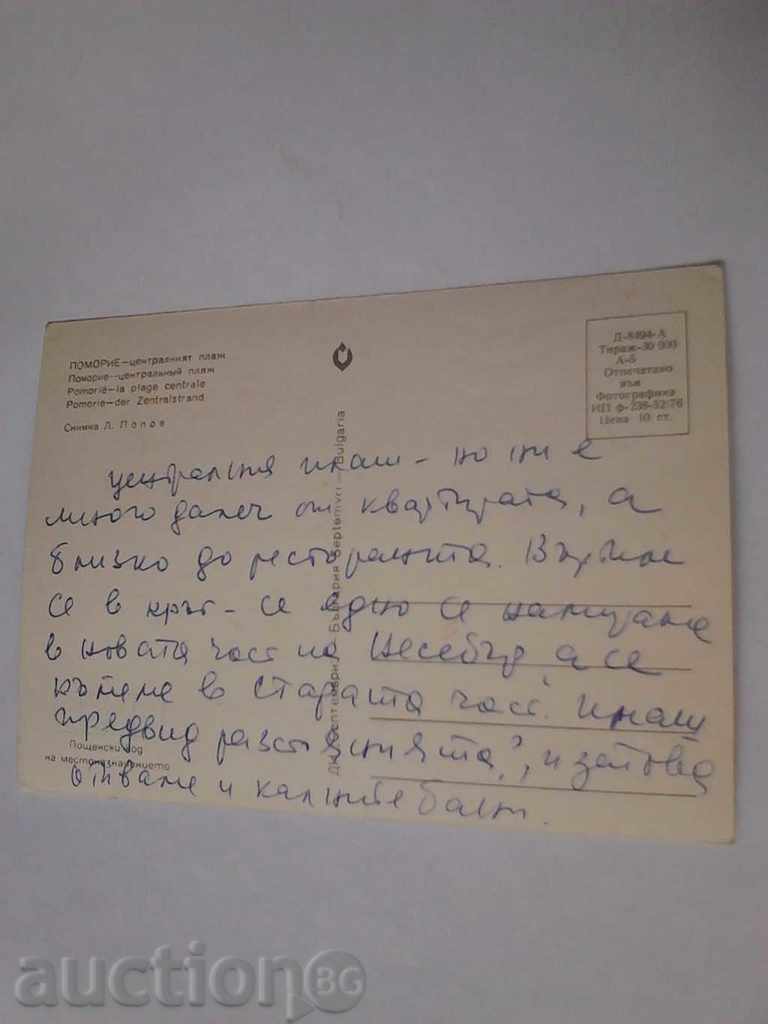 ПОМОРИЕ—централният плаж
Поморие—центральный пляж
Pomorie—la plage centrale
Pomorie—der Zentralstrand
Снимка Л. Попов
Д-8494-А
Тираж-30 000
А-5
Отпечатано
във
Фотографика
ИП ф-238-52/76
Цена 10 ст.
ДП Септември, България Septemvri — Bulgaria
Пощенски код
на местоназначението
централния плаж – но ни е
много далеч от квартирата, а
близко до ресторанта. Въртим
се в кръг – се едно се намираме
в новата част на Несебър, а се
къпеме в старата част.
предвид разстоянията,
отиваме и калните бани.
auctionBG